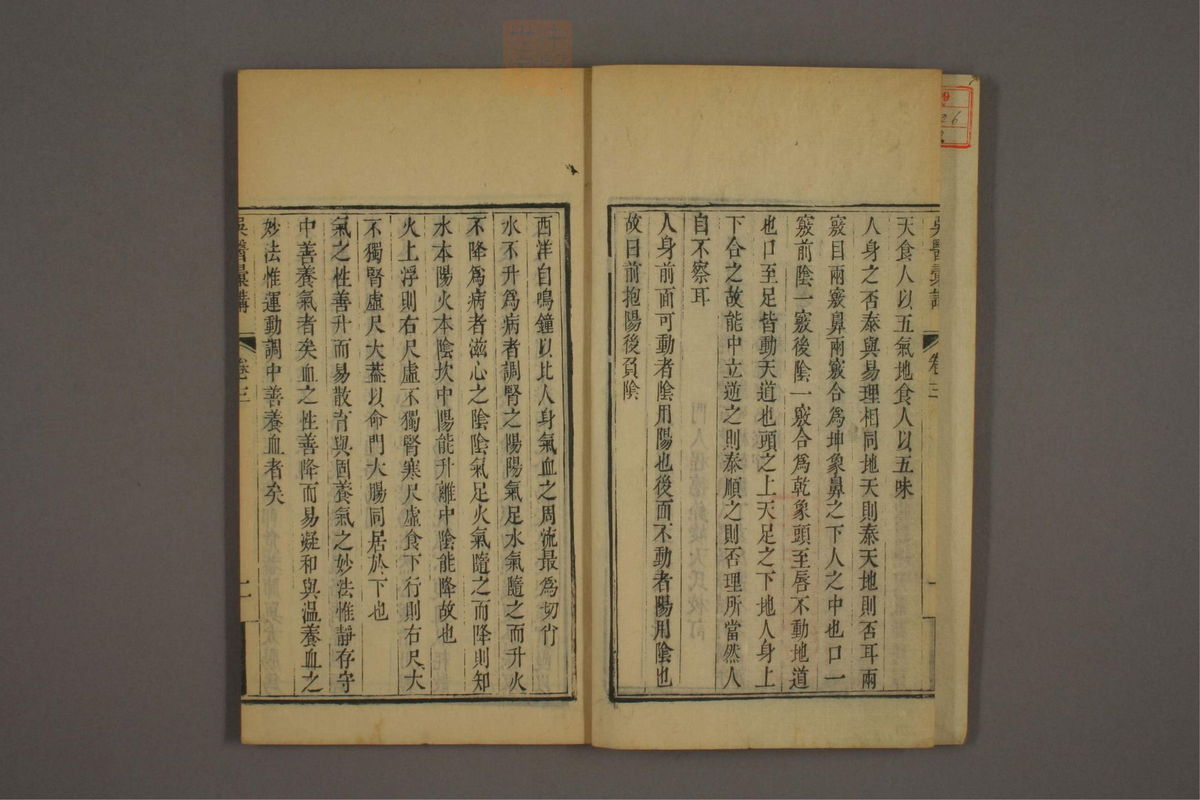 吳醫彙講
卷三
天食人以五氣地食人以五味
人身之否泰與易理相同地天則泰天地則否耳兩
竅目兩竅鼻兩竅合爲坤象鼻之下人之中也口一
竅前陰一竅後陰一竅合爲乾象頭至唇不動地道
也口至足皆動天道也頭之上天足之下地人身上
下合之故能中立逆之則泰順之則否理所當然人
自不察耳
人身前面可動者陰用陽也後面不動者陽用陰也
故曰前抱陽後負陰
西洋自鳴鐘以比人身氣血之周流最爲切肖
水不升爲病者調腎之陽陽氣足水氣隨之而升火
不降爲病者滋心之陰陰氣足火氣隨之而降則知
水本陽火本陰坎中陽能升離中陰能降故也
火上浮則右尺虛不獨腎寒尺虛食下行則右尺大
不獨腎虛尺大蓋以命門大腸同居於下也
氣之性善升而易散育與固養氣之妙法惟靜存守
中善養氣者矣血之性善降而易凝和與溫養血之
妙法惟運動調中善養血者矣
吳醫彙講
卷三
二